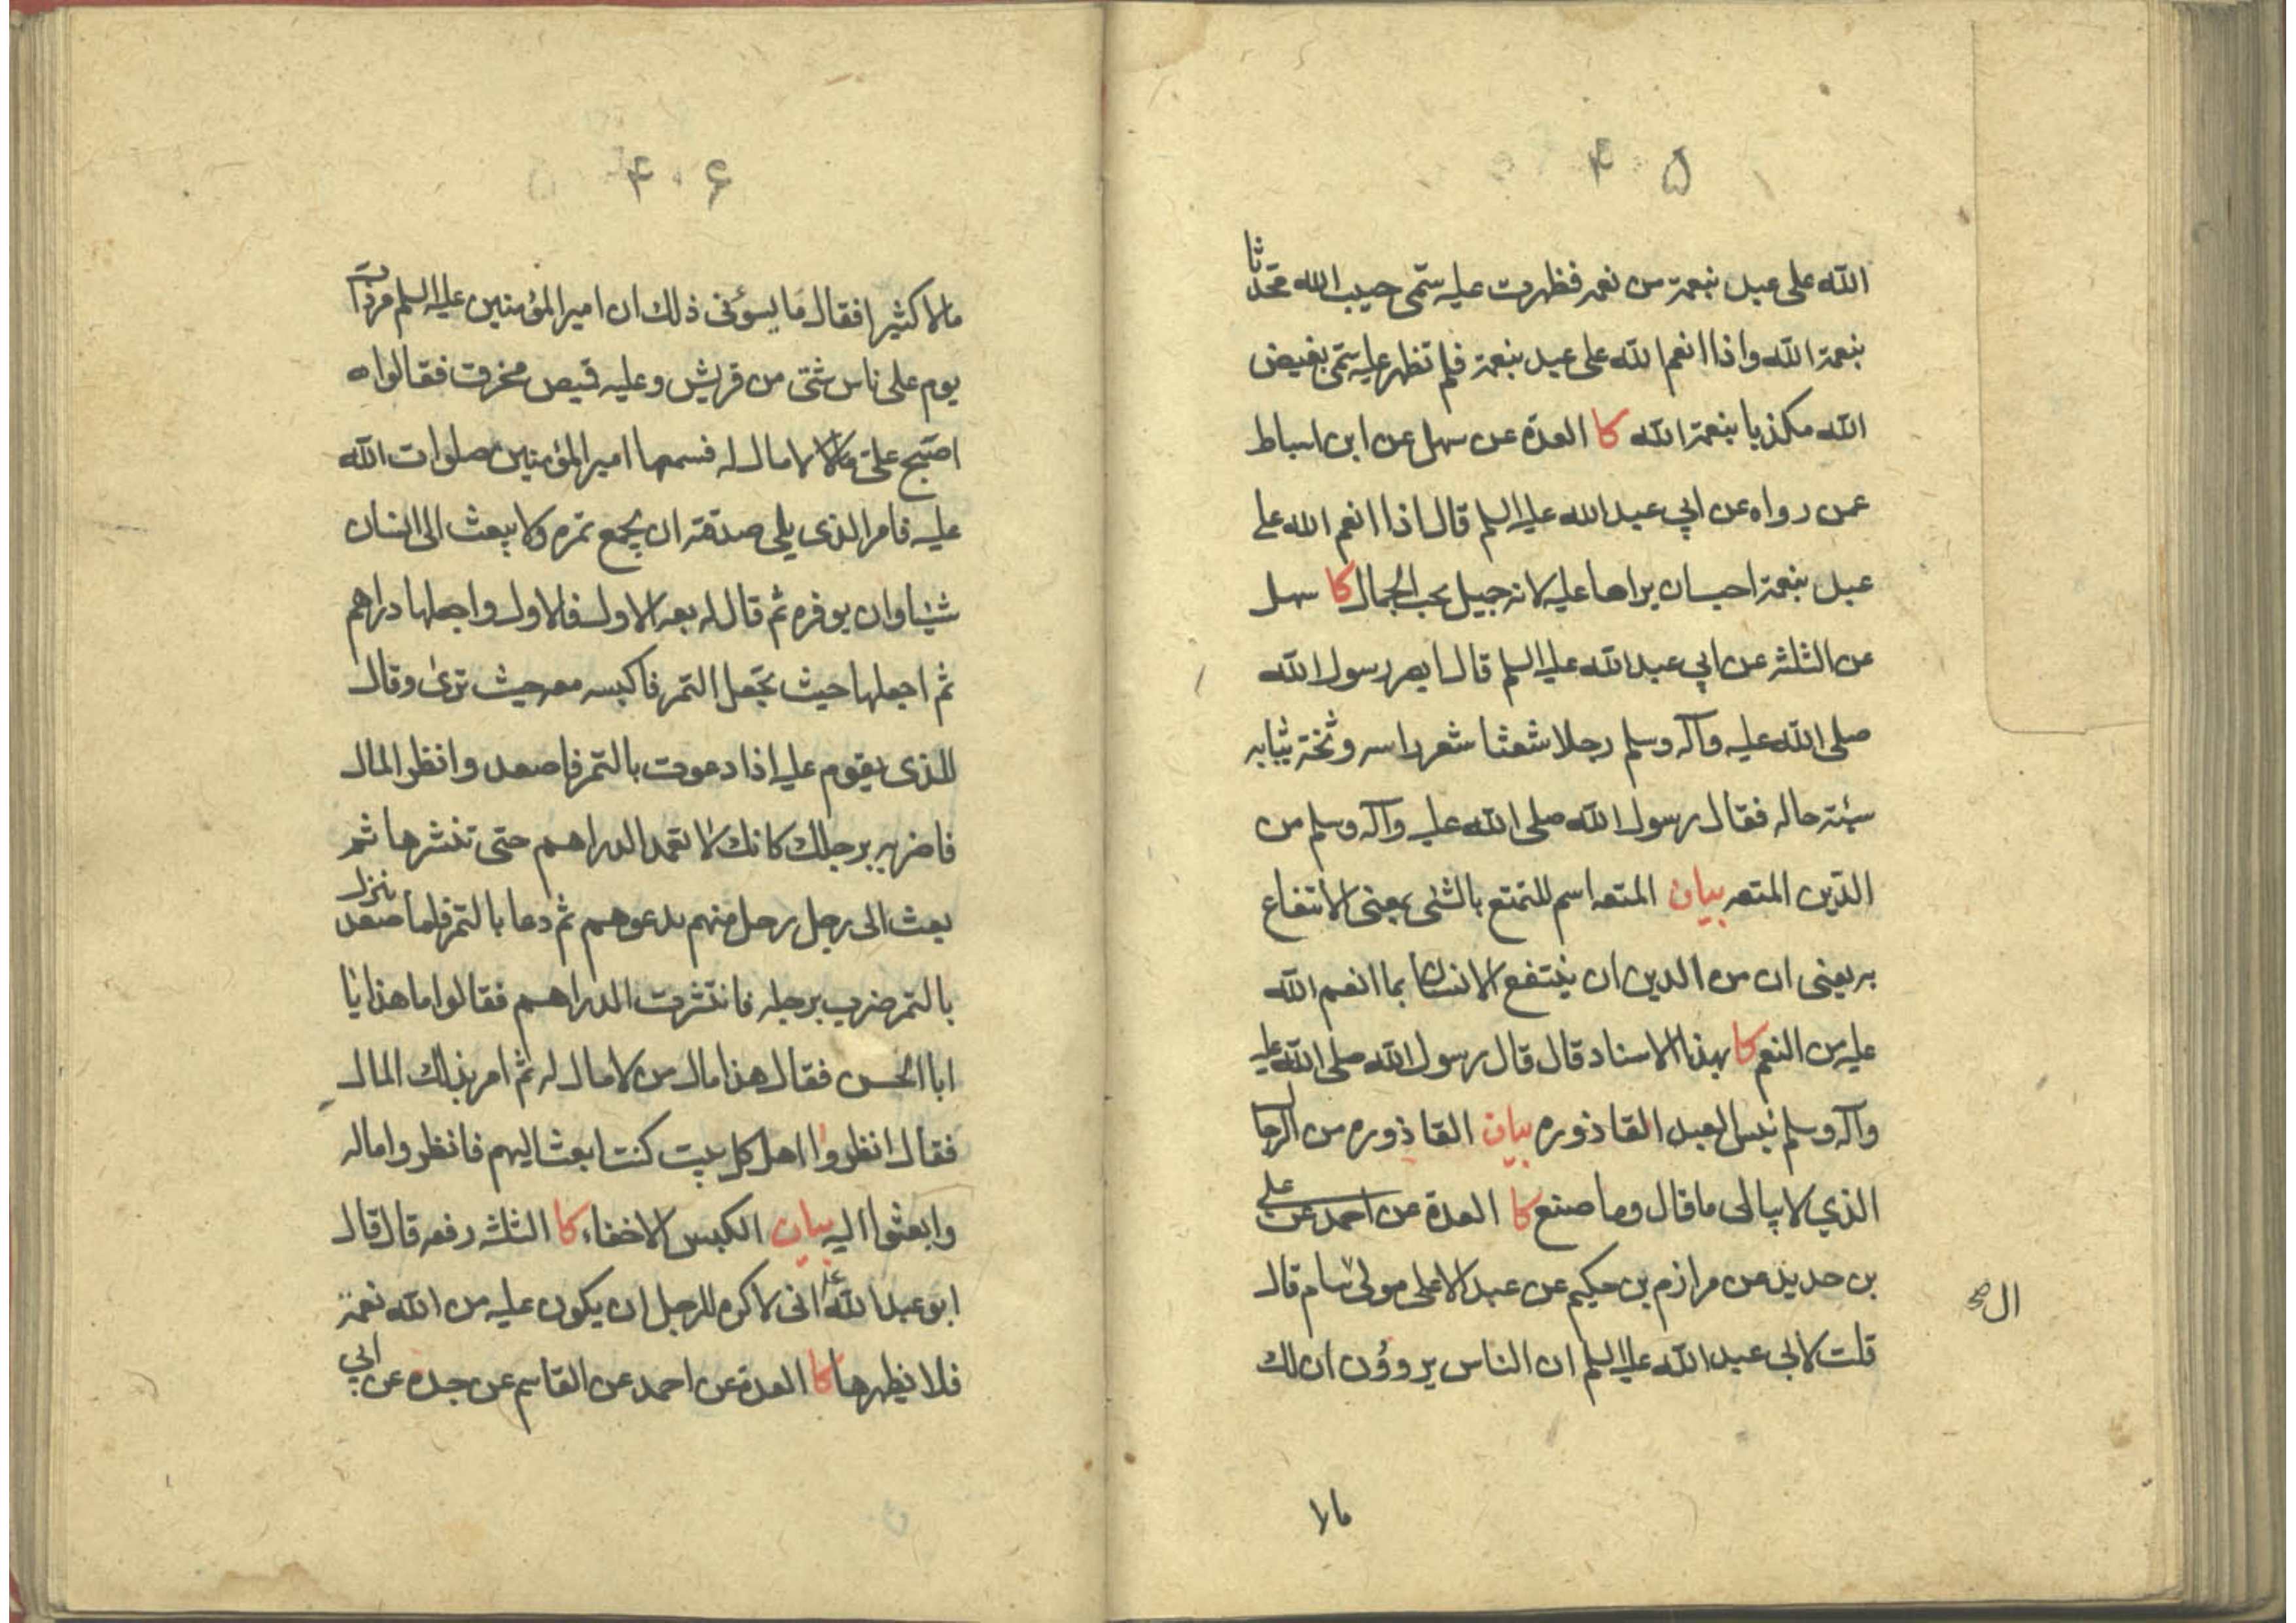 ۴۰۵
الله على عبد بنعمة من نعمه فظهرت عليه سمّى حبيب الله محدثا
بنعمة الله واذا انعم الله على عبد بنعمة فلم تظهر عليه سمّى بغيض
الله مكذبا بنعمة الله كا العدة عن سهل عن ابن اسباط
عمن رواه عن ابي عبد الله عليه السلم قال اذا انعم الله على
عبد بنعمة احب ان يراها عليه لانه جميل يحب الجمال كا سهل
عن الثلثه عن ابي عبد الله عليه السلم قال ابصر رسول الله
صلى الله عليه وآله وسلم رجلا شعثا شعر راسه وسخة ثيابه
سيئة حاله فقال رسول الله صلى الله عليه وآله وسلم من
الدّين المتعه بيان المتعه اسم للتمتع بالشئ بمعنى الانتفاع
به يعنى ان من الدين ان ينتفع الانسان بما انعم الله
عليه من النعم كا بهذا الاسناد قال قال رسول الله صلى الله عليه
وآله وسلم بئس العبد القاذوره بيان القاذوره من الرجال
الذي لا يبالى ما قال وما صنع كا العدة عن احمد عن على
بن حديد عن مرازم بن حكيم عن عبد الاعلى مولى ال سام قال
ال صح
قلت لابى عبد الله عليه السلم ان الناس يروؤن ان لك
مالا
۴۰۶
مالا كثيرا فقال ما يسوئنى ذلك ان امير المؤمنين عليه السلم مر ذات
يوم على ناس شتى من قريش وعليه قميص مخرق فقالوا
اصبح على لا مال له فسمعها امير المؤمنين صلوات الله
عليه فامر الذى يلى صدقته ان يجمع تمره ولا يبعث الى انسان
شيئا وان يوفره ثم قال له بعه الاول فالاول واجعلها دراهم
ثم اجعلها حيث تجعل التمر فاكبسه معه حيث ترى وقال
للذى يقوم عليه اذا دعوت بالتمر فاصعد وانظر المال
فاضربه برجلك كانك لا تعمد الدراهم حتى تنثرها ثم
بعث الى رجل رجل منهم يدعوهم ثم دعا بالتمر فلما صعد ينزل
بالتمر ضرب برجله فانتثرت الدراهم فقالوا ما هذا يا
ابا الحسن فقال هذا مال من لا مال له ثم امر بذلك المال
فقال انظروا اهل كل بيت كنت ابعث اليهم فانظروا ماله
وابعثوا اليه بيان الكبس الاخفاء كا الثلثه رفعه قال قال
ابو عبد الله ع انى لاكره للرجل ان يكون عليه من الله نعمة
فلا يظهرها كا العدة عن احمد عن القاسم عن جده عن ابي